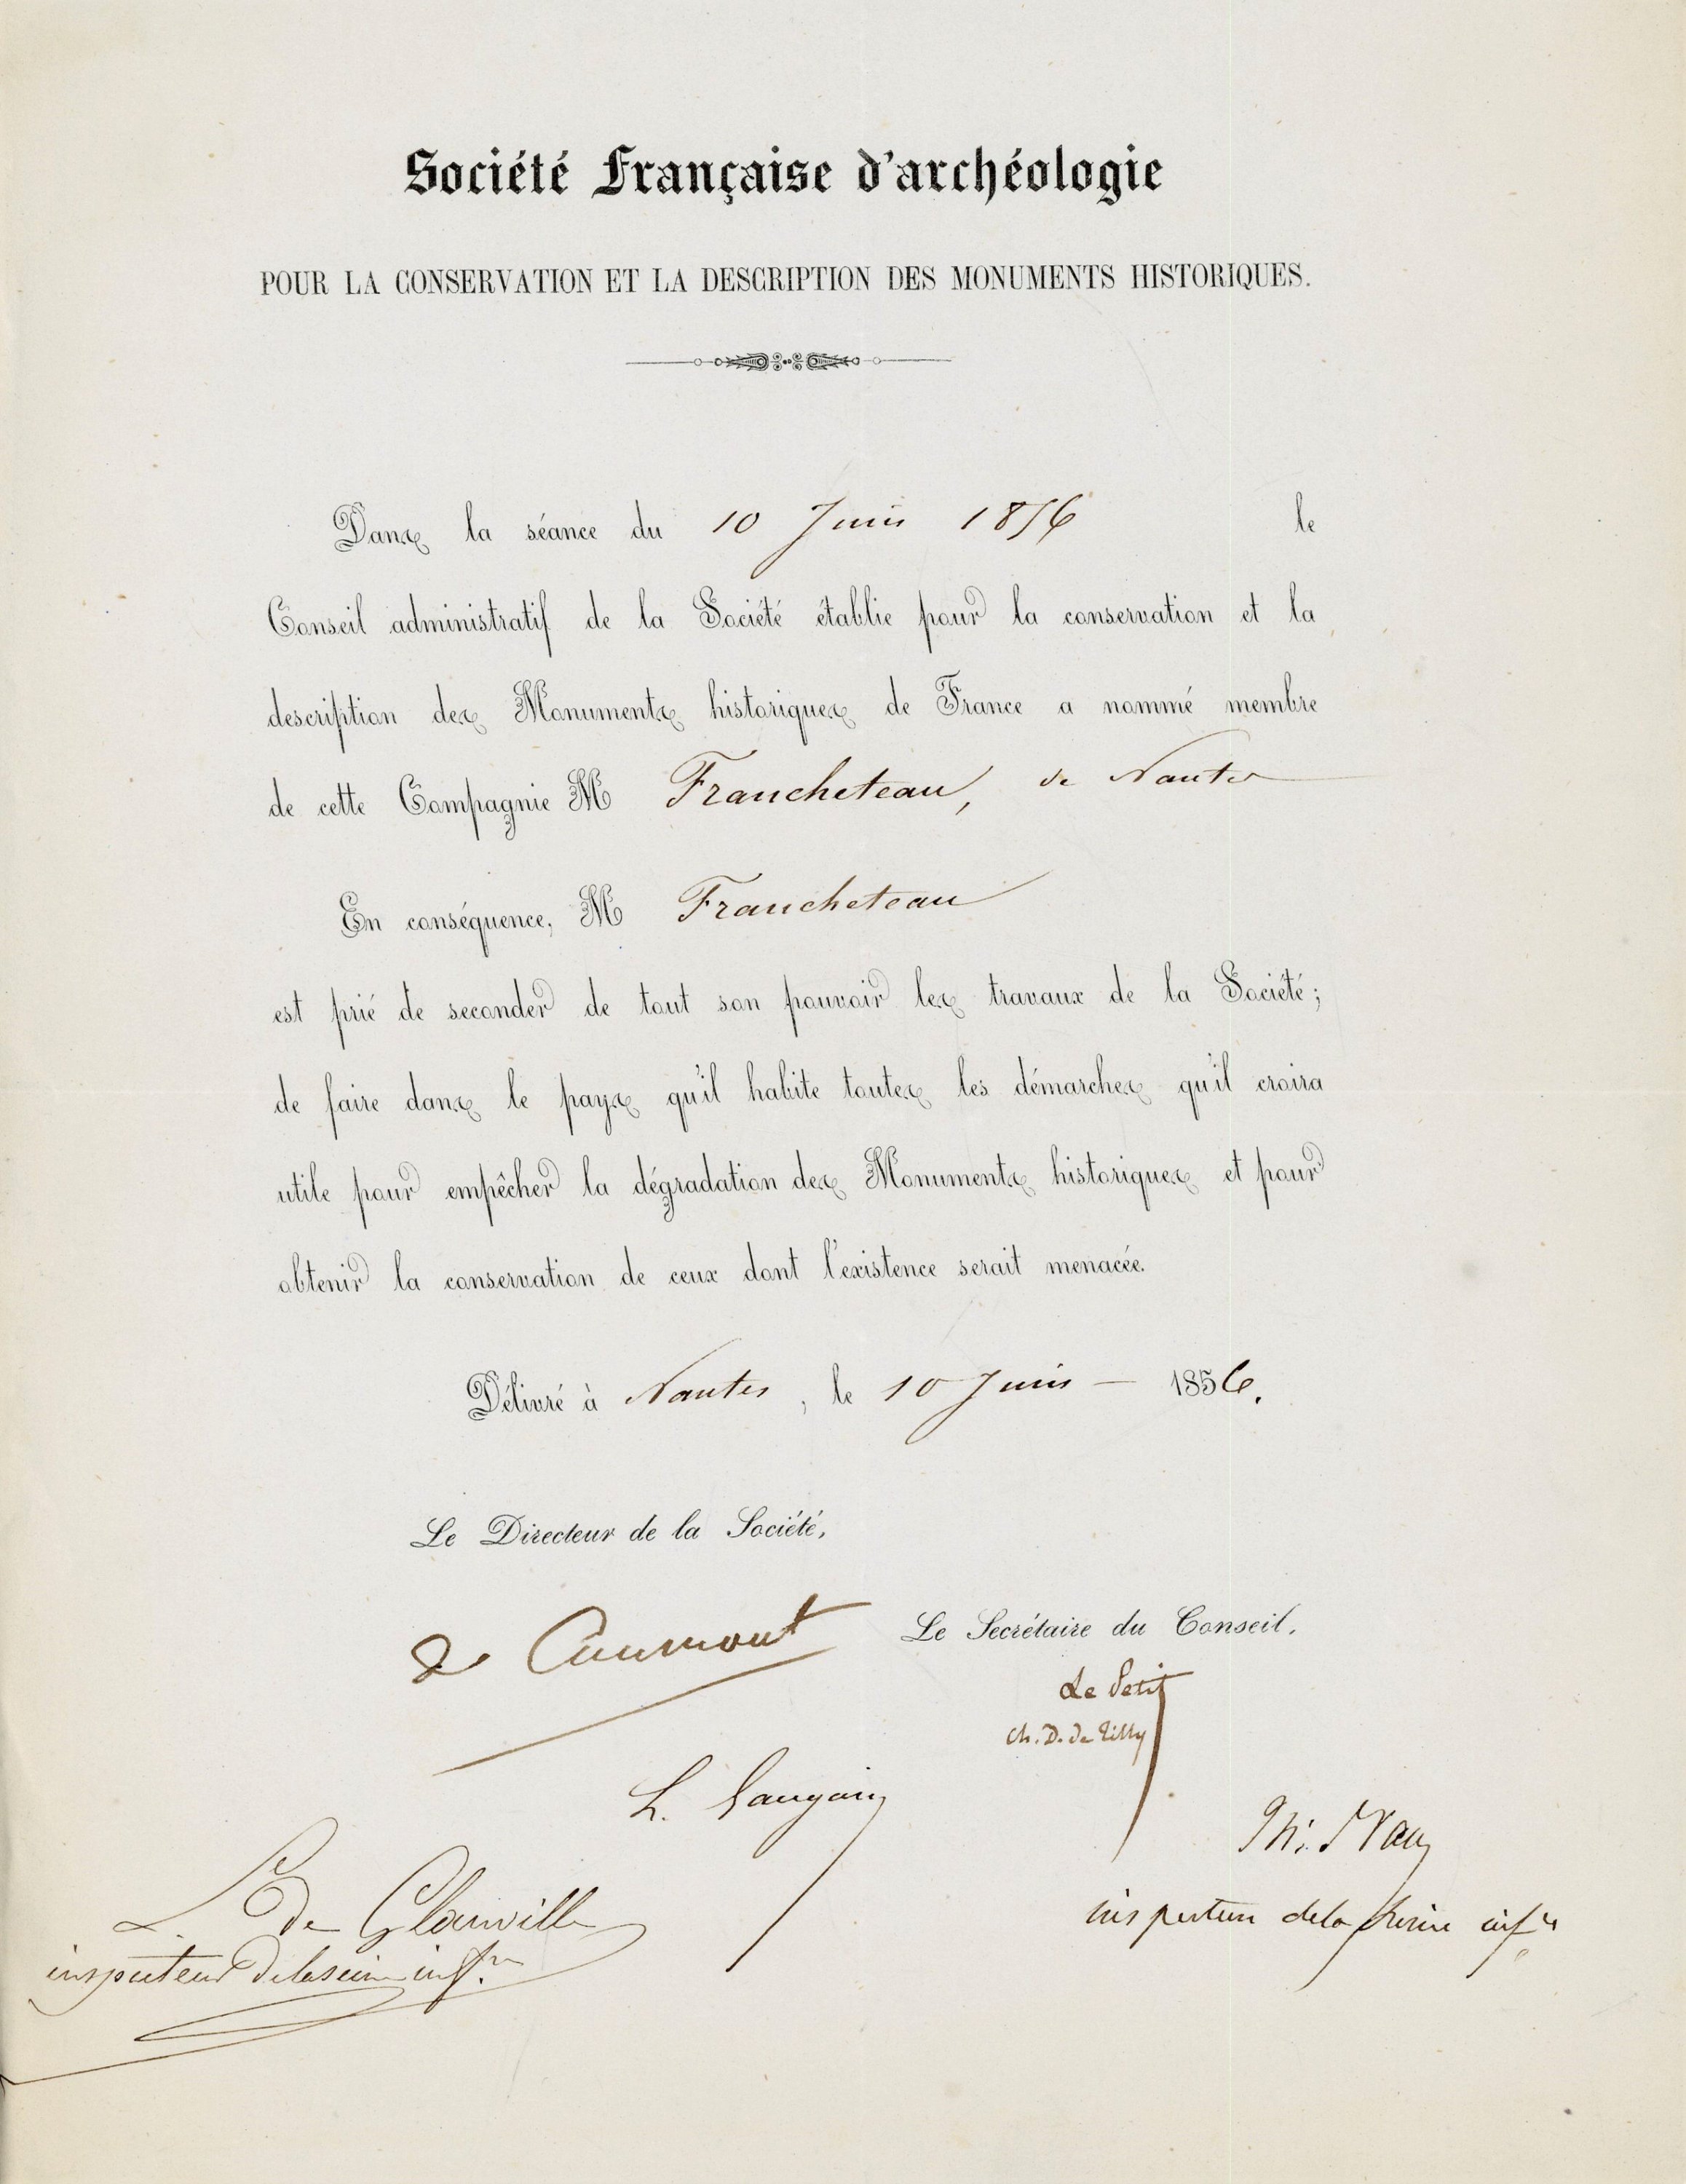 Société Française d'archéologie
POUR LA CONSERVATION ET LA DESCRIPTION DES MONUMENTS HISTORIQUES.
Dans la séance du 10 Juin 1856 le
Conseil administratif de la Société établie pour la conservation et la
description des Monuments historiques de France a nommé membre
de cette Compagnie M Francheteau, de Nantes
En conséquence, M Francheteau
est prié de seconder de tout son pouvoir les travaux de la Société;
de faire dans le pays qu'il habite toutes les démarches qu'il croira
utile pour empêcher la dégradation des Monuments historiques et pour
obtenir la conservation de ceux dont l'existence serait menacée.
Délivré à Nantes, le 10 Juin — 1856.
Le Directeur de la Société,
de Caumont
Le Secrétaire du Conseil.
Le Petit
Ch. D. de Tilly
L. Gaugain
L. de Glanville
inspecteur de la seine infre
inspecteur de la